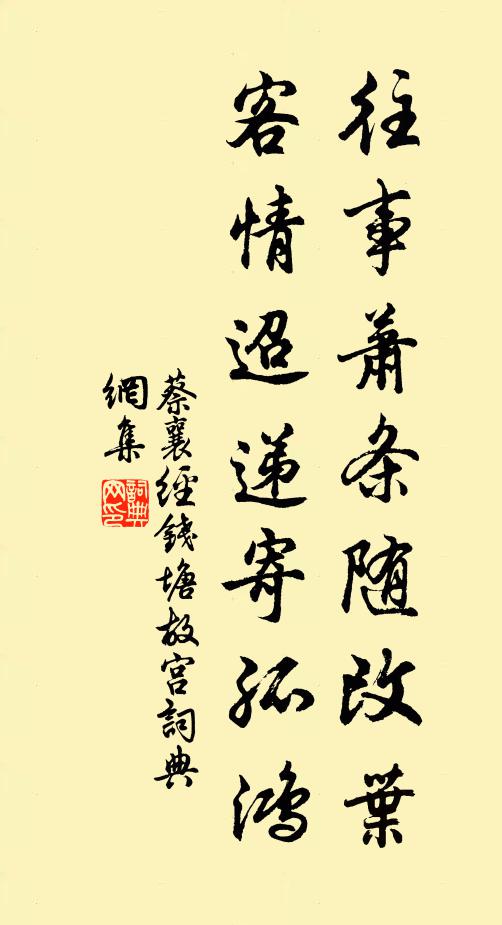 往事萧条随改葉
客情迢递寄孤鸿
蔡襄經錢塘故宫詞典
網集
詞典
网印